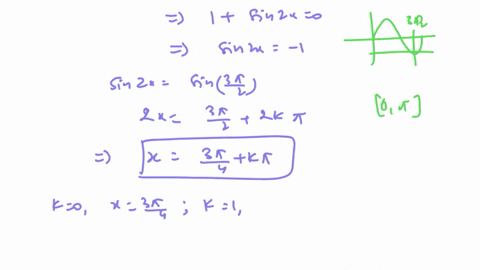 => 1 + sin2x=0
=> sin2x = -1
sin 2x = sin(3π/2)
2x = 3π/2 + 2kπ
=> x = 3π/4 + kπ
k=0, x=3π/4 ; k=1,
3π/2
[0, π]